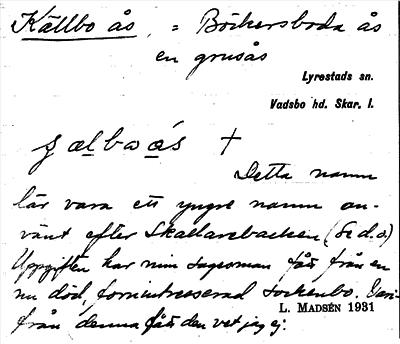 Källbo ås, = Böckersboda ås
en grusås
Lyrestads sn.
Vadsbo hd. Skar. l.
ɕælbω ås †
Detta namn
lär vara ett yngre namn an-
vänt efter Skallarebacken (Se d.o)
Uppgiften har min sagesman fått från en
nu död, fornintresserad sockenbo. Vari-
från denna fått den vet jag ej.
L. MADSÉN 1931